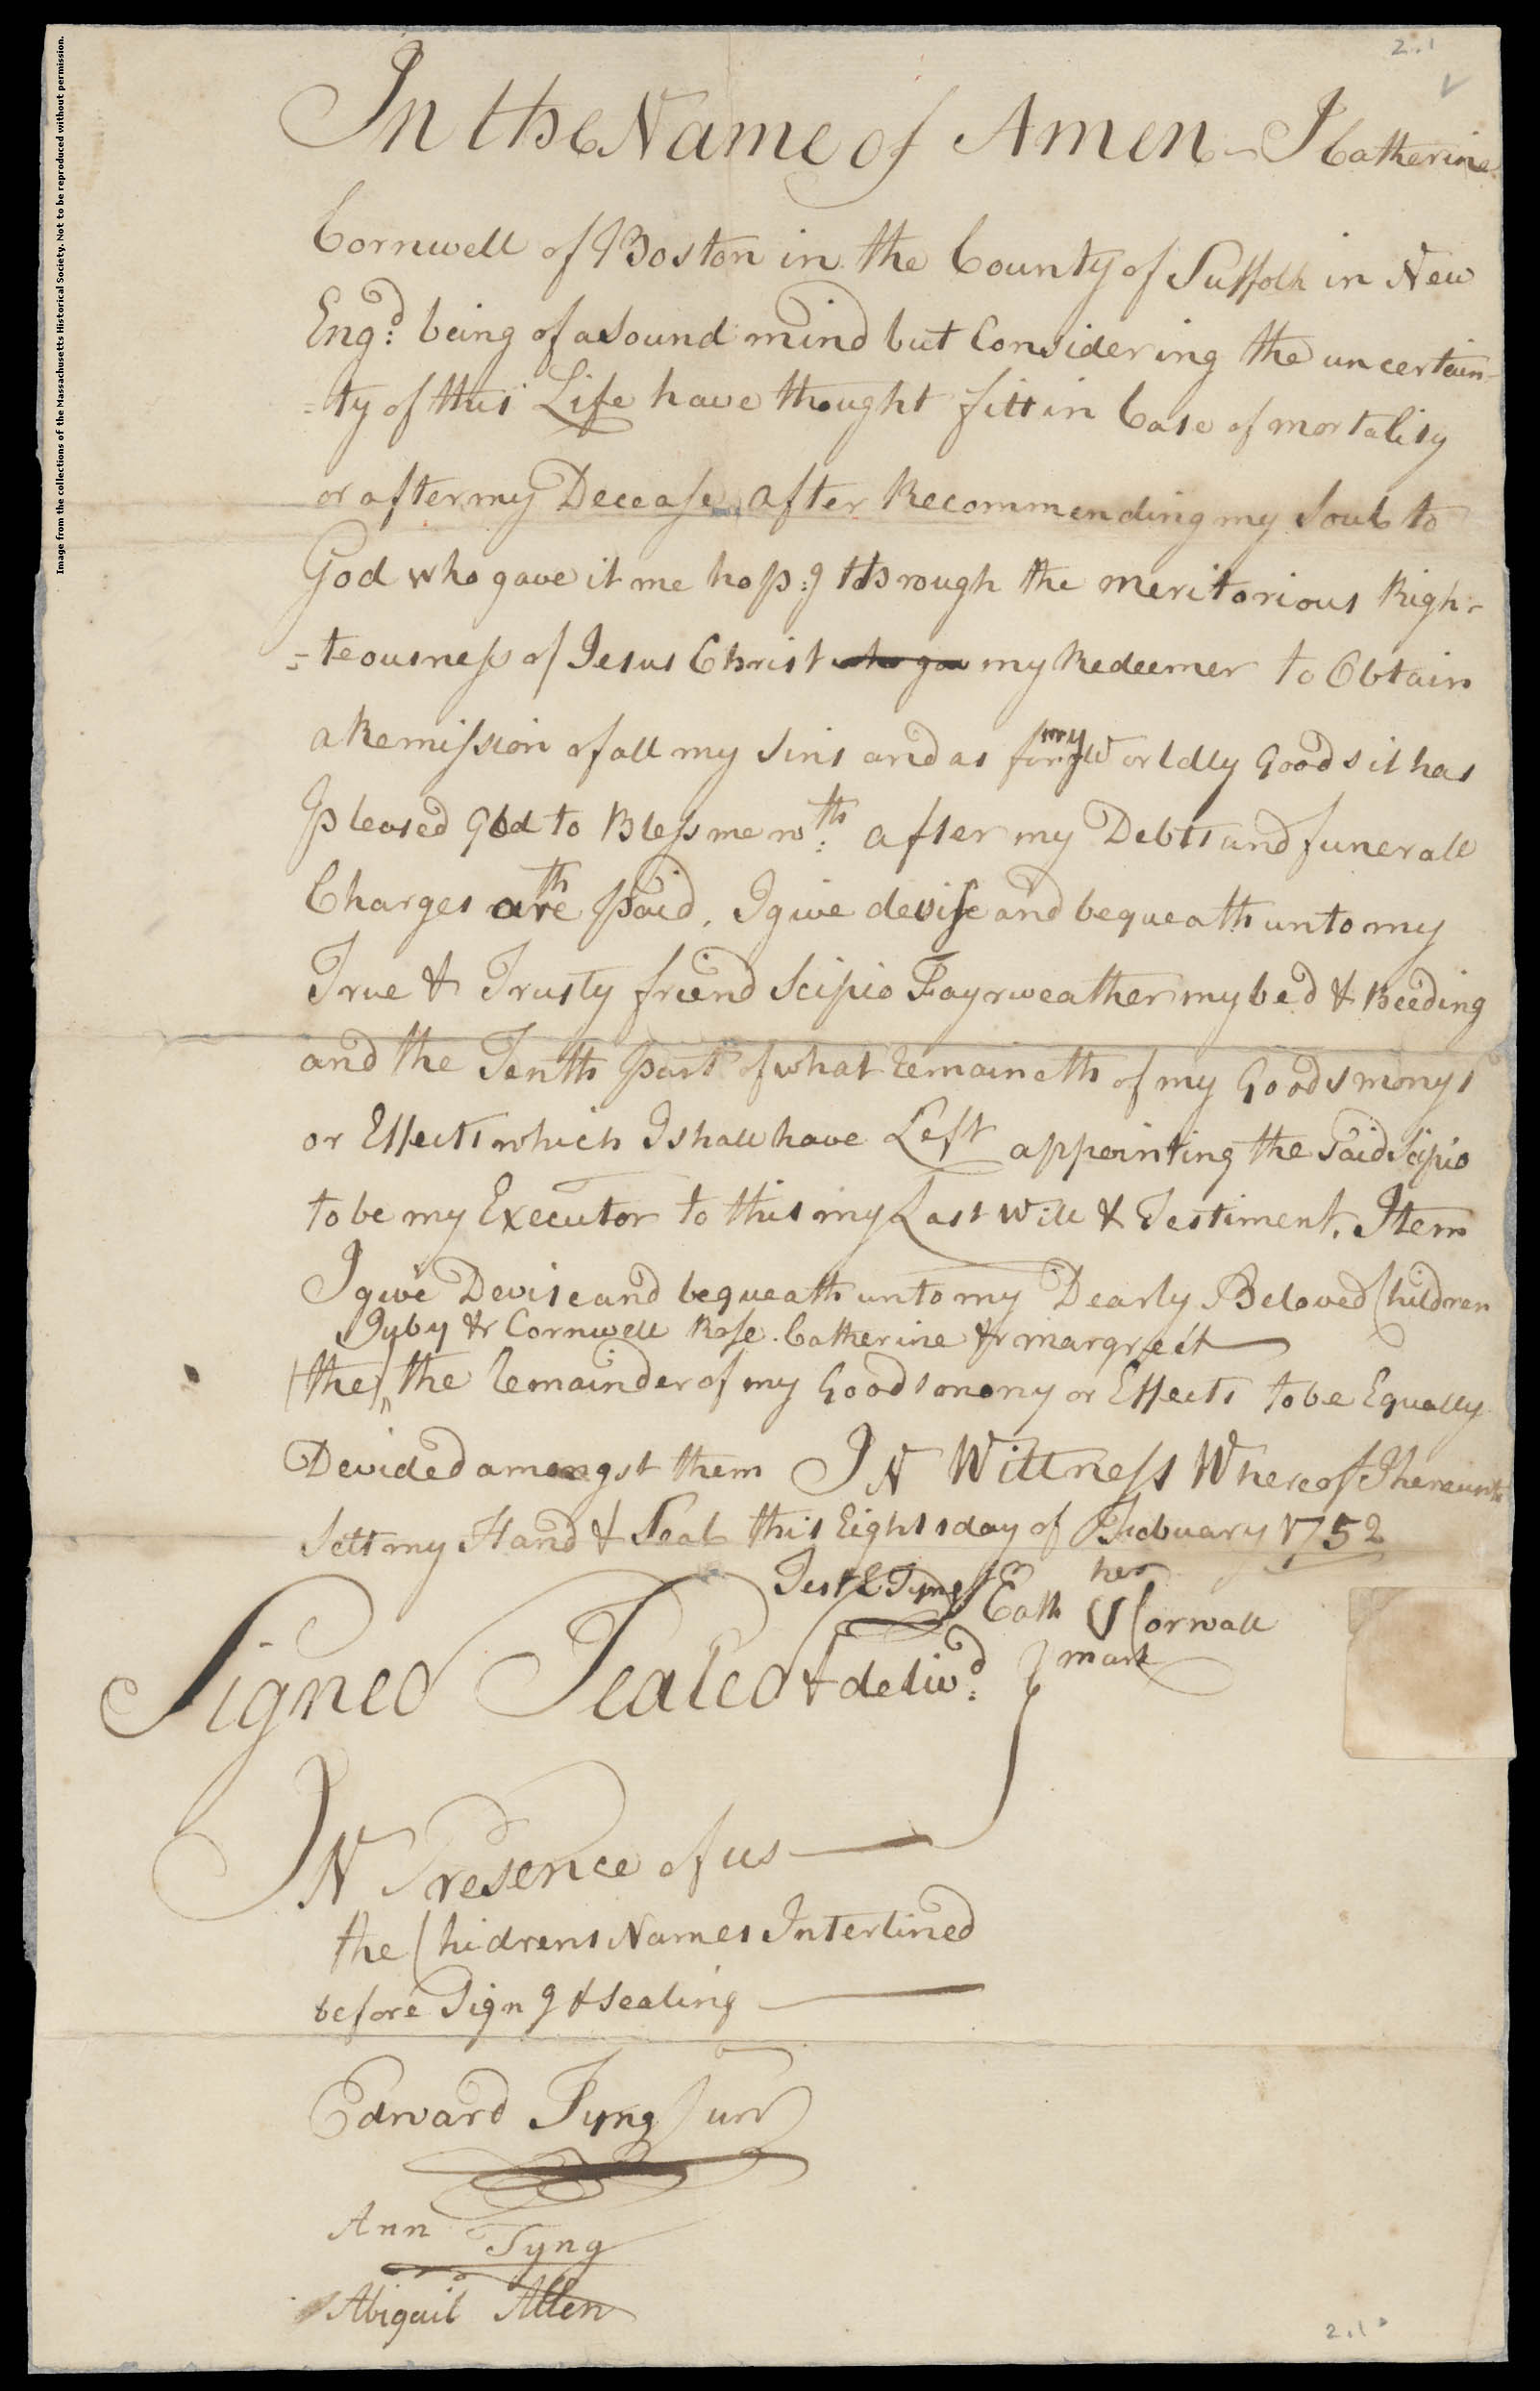 2.1
Image from the collections of the Massachusetts Historical Society. Not to be reproduced without permission.
In the Name of Amen - I Catherine
Cornwell of Boston in the County of Suffolk in New
Eng:d being of a Sound mind but Considering the uncertain-
=ty of this Life have thought fitt in Case of mortality
or after my Decease after Recommending my Soul to
God who gave it me hop:g through the meritorious Righ-
=teousness of Jesus Christ who gav my Redeemer to Obtain
a Remission of all my Sins and as for my Worldly Goods it has
pleased God to Bless me w:th after my Debts and funerall
Charges are paid, I give devise and bequeath unto my
True & Trusty friend Scipio Fayrweather my bed & Beeding
and the Tenth part of what remaineth of my Goods monys
or Effects which I shall have Left appointing the Said Scipio
to be my Executor to this my Last Will & Testiment. Item
I give Devise and bequeath unto my Dearly Beloved Children
Juby & Cornwell Rose. Catherine & margreet
the the remainder of my Goods monny or Effects to be Equally
Devided amongst them IN Wittness Whereof I hereunto
Sett my Hand & Seal this Eights day of Februbuary 1752
Test E Tyng Jr Cath her Cornwall
mark
Signed Sealed & deliv:d
IN Presence of us
the Chidrens Names Interlined
before Sign g & Sealing
Edward Tyng Junr
Ann Tyng
Abigail Allen
2.1